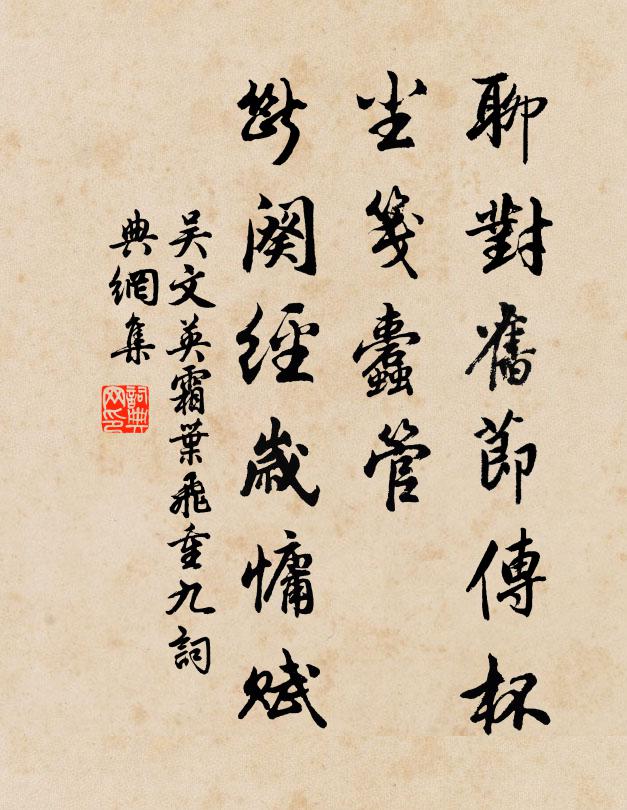 聊對舊節傳杯
尘箋蠹管
斷闋經歲慵賦
吴文英霜葉飛重九詞
典網集
詞典
网印